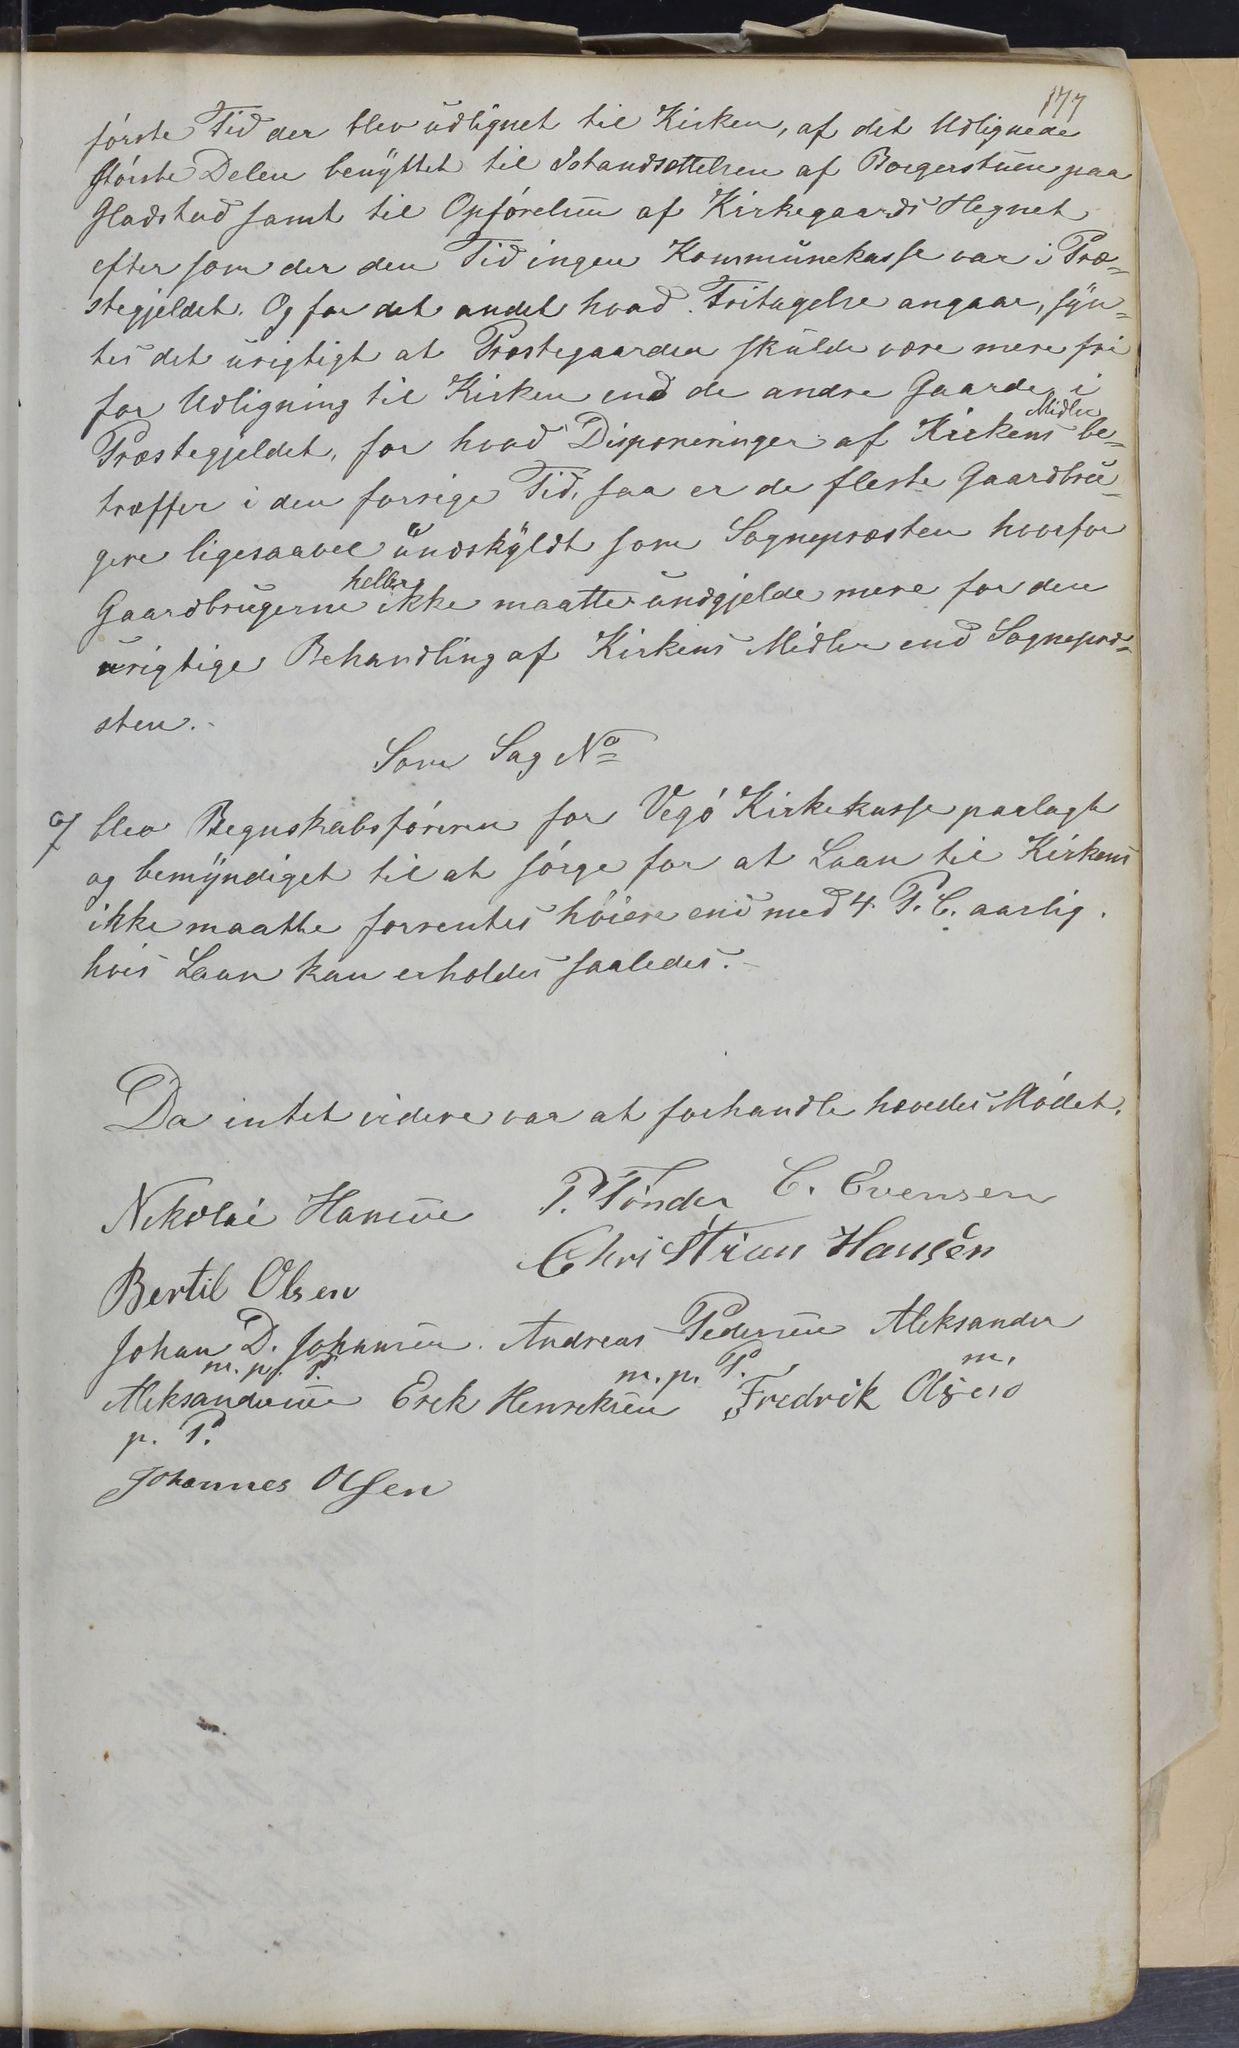 177
første Tid der blev udlignet til Kirken, af det Udlignede
største Delen benyttet til Istandsættelsen af Borgerstuen paa
Gladstad samt til Opførelsen af Kirkegaards Hegnet
efter som der den Tid ingen Kommunekasse var i Præ-
stegjeldet. Og for det andet hvad Fritagelse angaar, syn-
tes det urigtigt at Præstegaarden skulde være mere fri
for Udligning til Kirken end de andre Gaarde i
Præstegjeldet, for hvad Disponeringer af Kirkens Midler be-
træffer i den forrige Tid, saa er de fleste Gaardbru-
gere ligesaavel undskyldt som Sognepræsten hvorfor
Gaardbrugerne heller ikke maatte undgjelde mere for den
urigtige Behandling af Kirkens Midler end Sognepræ-
sten.
Som Sag No
7 blev Regnskabsføreren for Vegø Kirkekasse paalagt
og bemyndiget til at sørge for at Laan til Kirken
ikke maatte forrentes høiere end med 4 P. C. aarlig.
hvis Laan kan erholdes saaledes.
Da intet videre var at forhandle hævedes Mødet.
Nikolai Hansen P. Tønder C. Evensen
Bertil Olsen Christian Hansen
Johan D. Johansen. Andreas Pedersen Aleksander
m. p. P. m. p. P. m.
Aleksandersen Erek Henreksen Fredrik Olsen
p. P.
Johannes Olsen